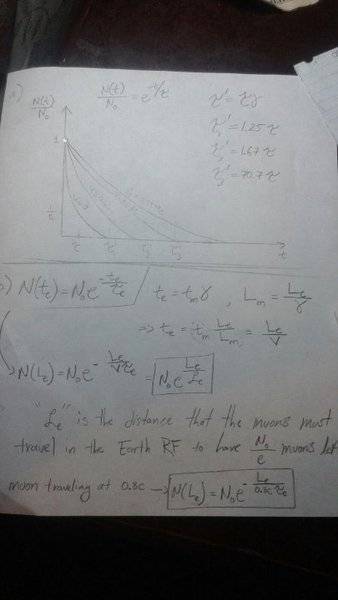 N(t)/N₀
N(t)/N₀ = e^(-t/τ)
τ' = τγ
τ₁' = 1.25 τ
τ₂' = 1.67 τ
τ₃' = 70.7 τ
1
1/e
τ τ₁' τ₂' τ₃' t
b) N(tₑ) = N₀e^(-tₑ/τₑ) tₑ = tₘγ , Lₘ = Lₑ/γ
⇒ tₑ = tₘ Lₑ/Lₘ = Lₑ/V
→ N(Lₑ) = N₀e^(-Lₑ/(Vτₑ)) = N₀e^(Lₑ/ℒₑ)
"ℒₑ" is the distance that the muons must
travel in the Earth RF to have N₀/e muons left
muon traveling at 0.8c → N(Lₑ) = N₀e^(-Lₑ/(0.8c τₑ))